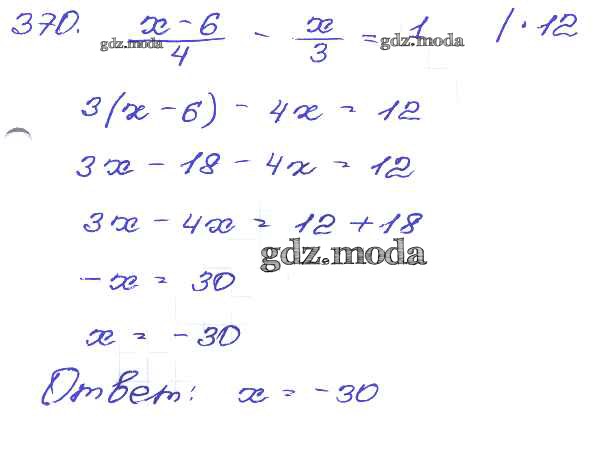 370. (x - 6)/4 - x/3 = 1 | · 12
gdz.moda gdz.moda
3(x - 6) - 4x = 12
3x - 18 - 4x = 12
3x - 4x = 12 + 18
gdz.moda
-x = 30
x = -30
Ответ: x = -30